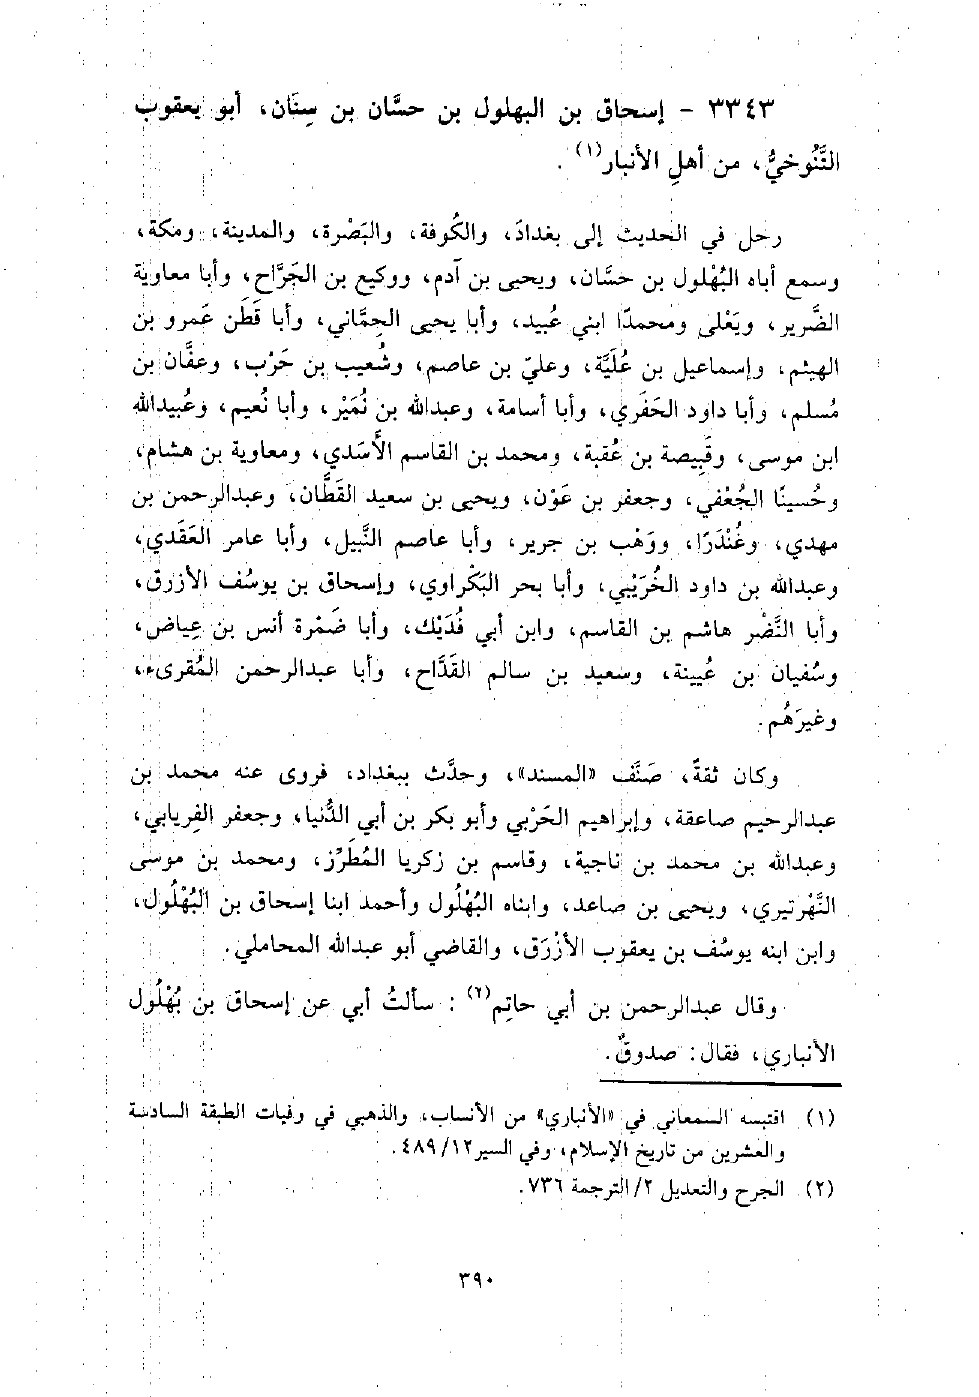 ٣٣٤٣ - إسحاق بن البهلول بن حسَّان بن سِنَان، أبو يعقوب
التَّنُوخيُّ، من أهلِ الأنبار(١) .
رحل في الحديث إلى بغدادَ، والكُوفة، والبَصْرة، والمدينة، ومكة،
وسمع أباه البُهْلول بن حسَّان، ويحيى بن آدم، ووكيع بن الجَرَّاح، وأبا معاوية
الضَّرير، ويَعْلى ومحمدًا ابني عُبيد، وأبا يحيى الحِمَّاني، وأبا قَطَن عَمرو بن
الهيثم، وإسماعيل بن عُلَيَّة، وعليّ بن عاصم، وشُعيب بن حَرْب، وعفَّان بن
مُسلم، وأبا داود الحَفَري، وأبا أسامة، وعبدالله بن نُمَيْر، وأبا نُعيم، وعُبيدالله
ابن موسى، وقَبِيصة بن عُقبة، ومحمد بن القاسم الأَسَدي، ومعاوية بن هشام،
وحُسينًا الجُعْفي، وجعفر بن عَوْن، ويحيى بن سعيد القَطَّان، وعبدالرحمن بن
مهدي، وغُنْدَرًا، ووَهْب بن جرير، وأبا عاصم النَّبيل، وأبا عامر العَقَدي،
وعبدالله بن داود الخُرَيْبي، وأبا بحر البَكْراوي، وإسحاق بن يوسُف الأزرق،
وأبا النَّضْر هاشم بن القاسم، وابن أبي فُدَيْك، وأبا ضَمْرة أنس بن عِياض،
وسُفيان بن عُيينة، وسعيد بن سالم القَدَّاح، وأبا عبدالرحمن المُقرىء،
وغيرَهُم.
وكان ثقةً، صَنَّف «المسند»، وحدَّث ببغداد، فروى عنه محمد بن
عبدالرحيم صاعقة، وإبراهيم الحَرْبي وأبو بكر بن أبي الدُّنيا، وجعفر الفِريابي،
وعبدالله بن محمد بن ناجية، وقاسم بن زكريا المُطَرِّز، ومحمد بن موسى
النَّهْرتيري، ويحيى بن صاعد، وابناه البُهْلُول وأحمد ابنا إسحاق بن البُهْلُول،
وابن ابنه يوسُف بن يعقوب الأزْرَق، والقاضي أبو عبدالله المحاملي.
وقال عبدالرحمن بن أبي حاتِم(٢) : سألتُ أبي عن إسحاق بن بُهْلُول
الأنباري، فقال: صدوقٌ.
(١) اقتبسه السمعاني في «الأنباري» من الأنساب، والذهبي في وفيات الطبقة السادسة
والعشرين من تاريخ الإسلام، وفي السير ١٢/ ٤٨٩.
(٢) الجرح والتعديل ٢/ الترجمة ٧٣٦.
٣٩٠